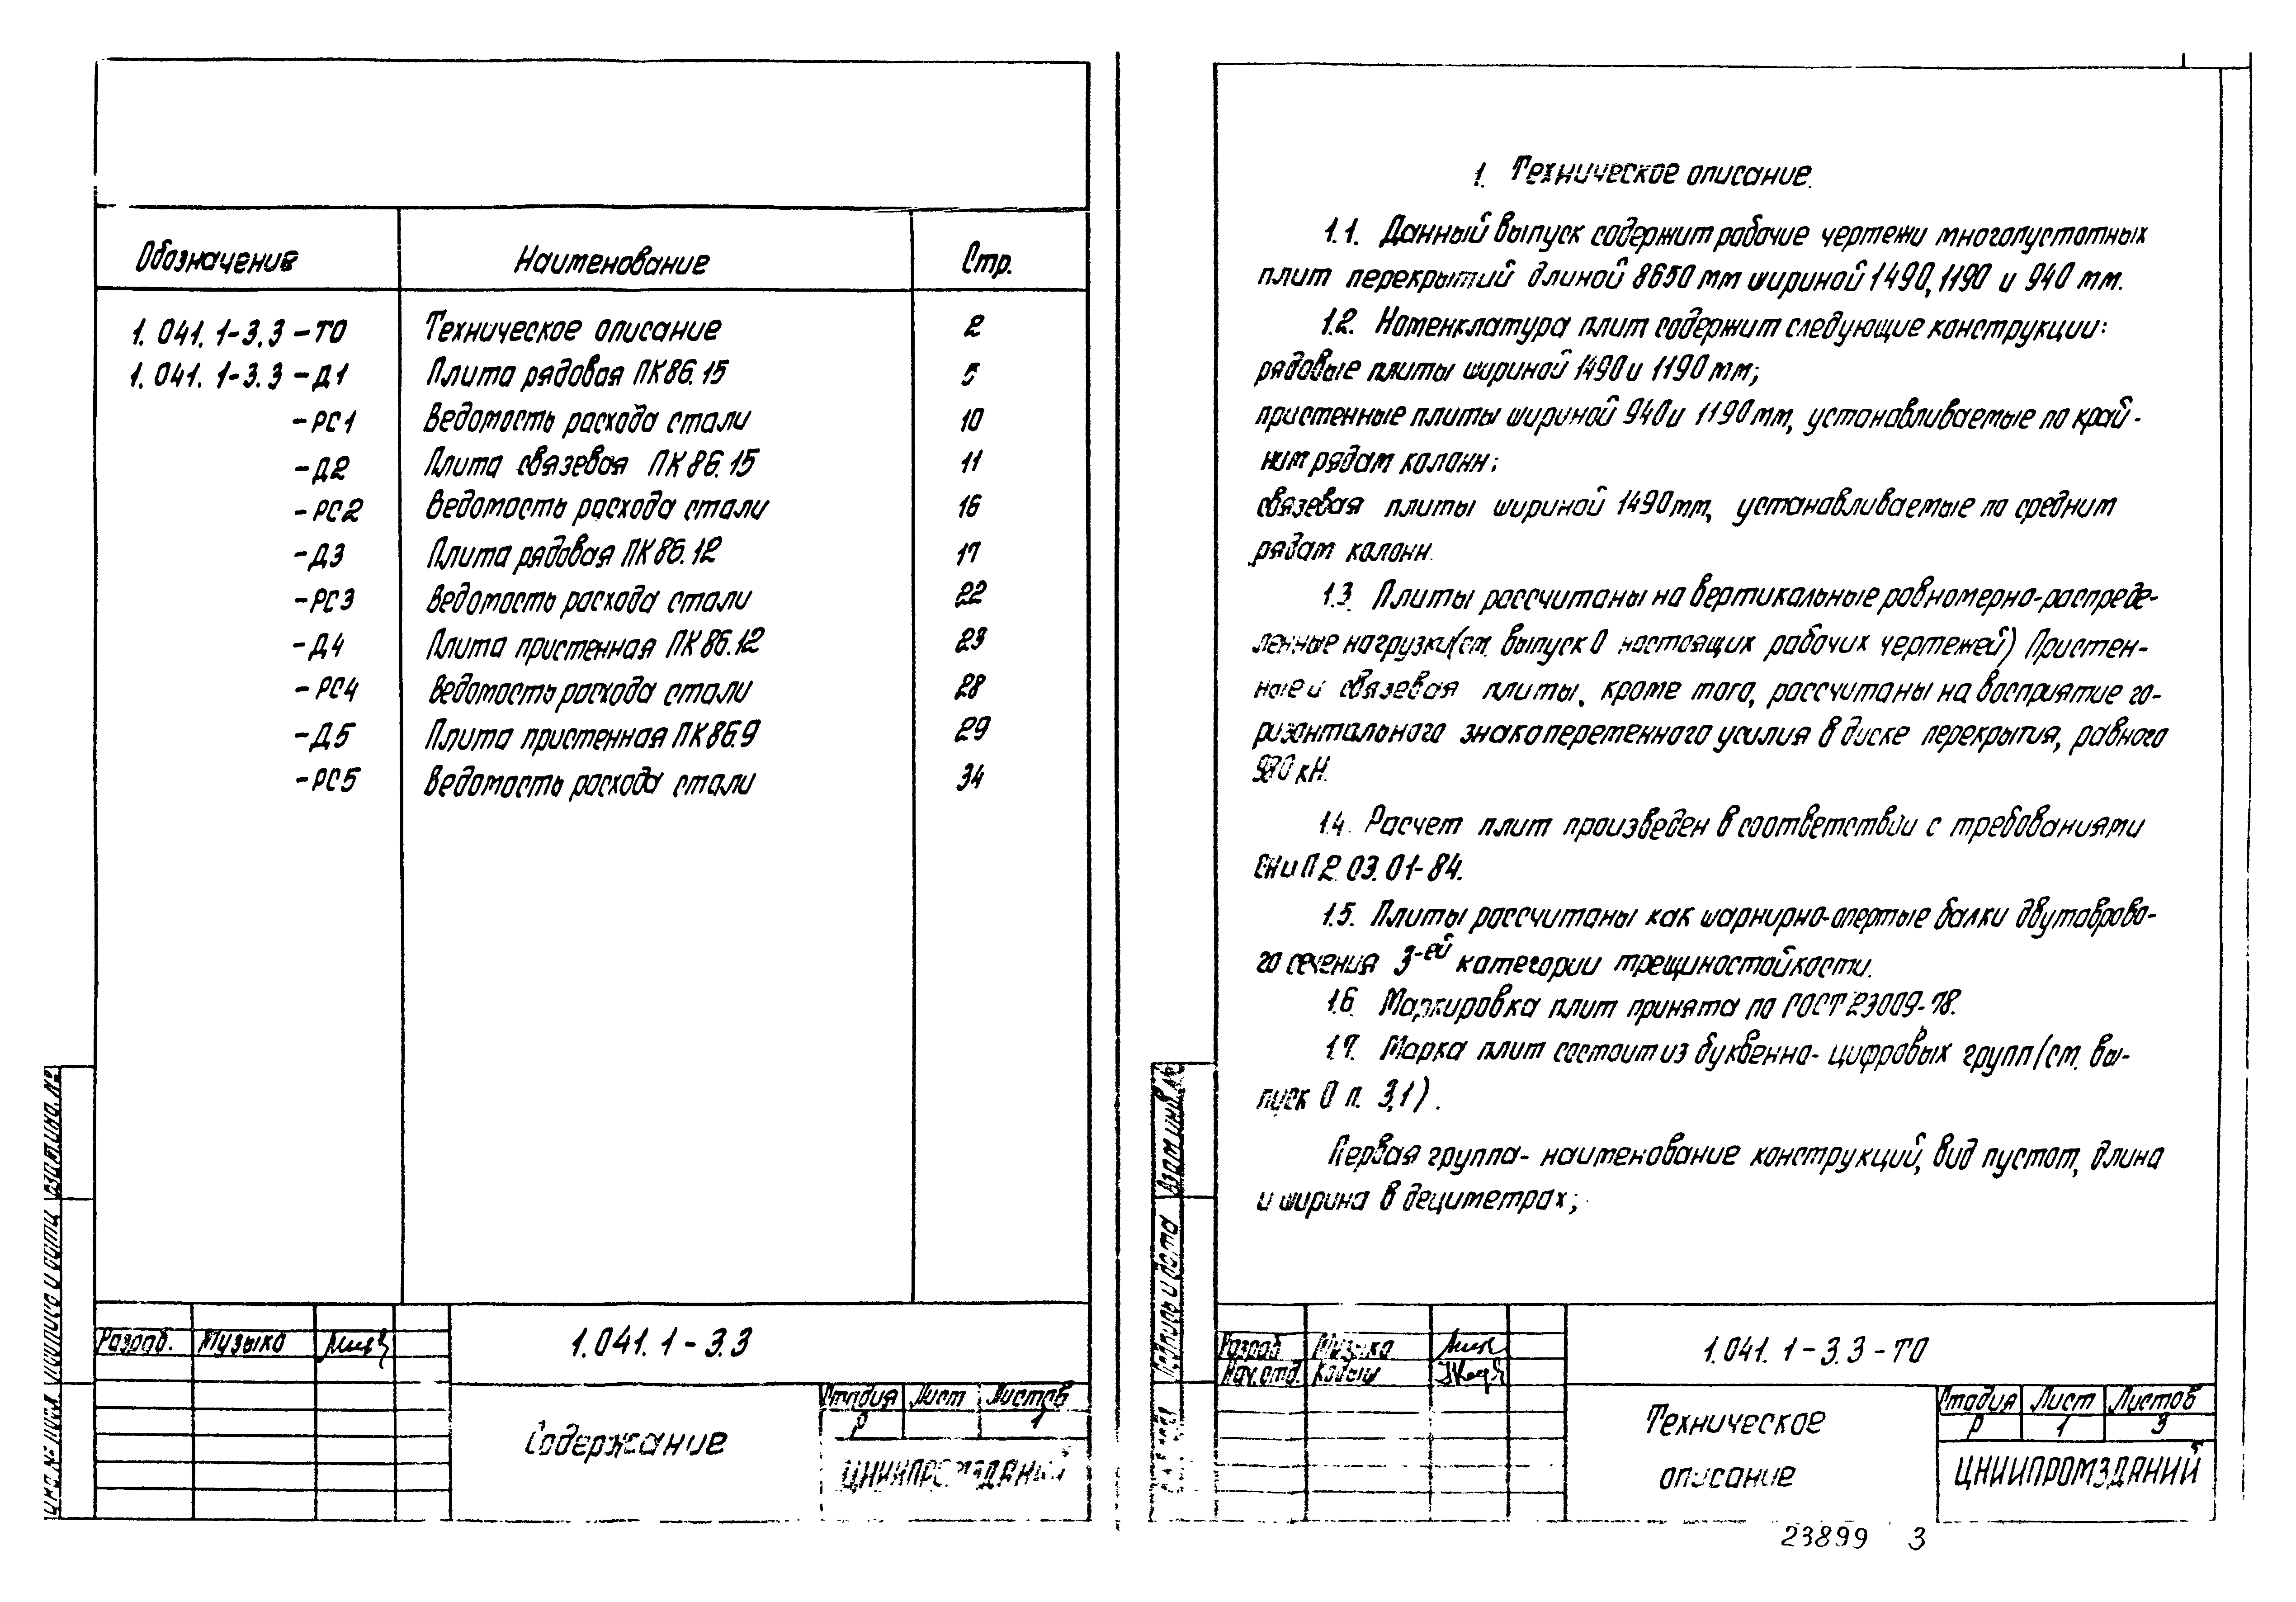 Обозначение Наименование Стр.
1.041.1-3.3-ТО Техническое описание 2
1.041.1-3.3-Д1 Плита рядовая ПК86.15 5
-РС1 Ведомость расхода стали 10
-Д2 Плита связевая ПК86.15 11
-РС2 Ведомость расхода стали 16
-Д3 Плита рядовая ПК86.12 17
-РС3 Ведомость расхода стали 22
-Д4 Плита пристенная ПК86.12 23
-РС4 Ведомость расхода стали 28
-Д5 Плита пристенная ПК86.9 29
-РС5 Ведомость расхода стали 34
Разраб. Музыко
1.041.1-3.3
Содержание
Стадия Лист Листов
Р 1
ЦНИИПРОМЗДАНИЙ
Подпись и дата
1. Техническое описание.
1.1. Данный выпуск содержит рабочие чертежи многопустотных
плит перекрытий длиной 8650 мм шириной 1490, 1190 и 940 мм.
1.2. Номенклатура плит содержит следующие конструкции:
рядовые плиты шириной 1490 и 1190 мм;
пристенные плиты шириной 940 и 1190 мм, устанавливаемые по край-
ним рядам колонн;
связевая плиты шириной 1490 мм, устанавливаемые по средним
рядам колонн.
1.3. Плиты рассчитаны на вертикальные равномерно-распреде-
ленные нагрузки (см. выпуск 0 настоящих рабочих чертежей) Пристен-
ные и связевая плиты, кроме того, рассчитаны на восприятие го-
ризонтального знакопеременного усилия в диске перекрытия, равного
кН.
1.4. Расчет плит произведен в соответствии с требованиями
СНиП 2.03.01-84.
1.5. Плиты рассчитаны как шарнирно-опертые балки двутаврово-
го сечения 3-ей категории трещиностойкости.
1.6. Маркировка плит принята по ГОСТ 23009-78.
1.7. Марка плит состоит из буквенно-цифровых групп (см. вы-
пуск 0 п. 3,1).
Первая группа- наименование конструкций, вид пустот, длина
и ширина в дециметрах;
Взам.инв.№
Подпись и дата
Разраб Музыко
Нач.отд.
1.041.1-3.3-ТО
Техническое
описание
Стадия Лист Листов
Р 1 3
ЦНИИПРОМЗДАНИЙ
23899 3